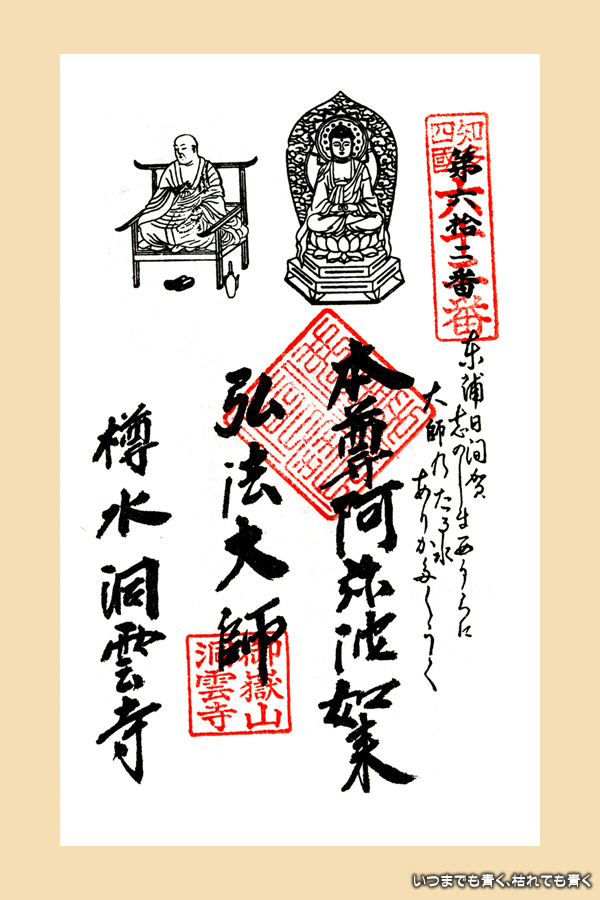 知多四國
六十二番
第六拾二番
东浦日间賀
志のしま西うらに
大師乃たる水
本尊阿弥陀如来
弘法大師
御嶽山
洞雲寺
樽水洞雲寺
いつまでも青く、枯れても青く